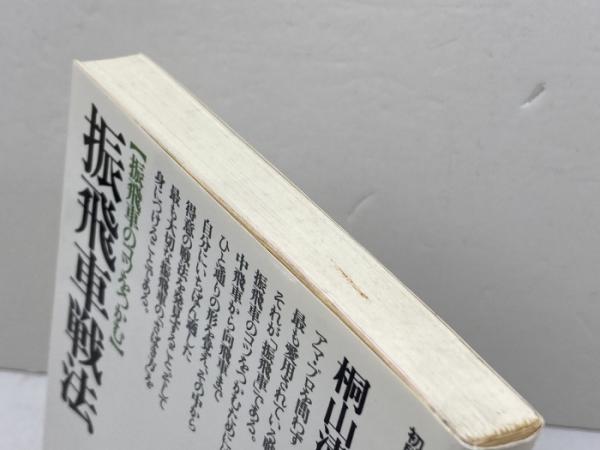 初
桐山清
アマ・プロを問わず
最も愛用されている戦
それが「振飛車」である。
振飛車のコツをつかむために
中飛車から向飛車まで
ひと通りの形を覚え、その中から
自分にいちばん適した
得意の戦法を発見すること、そして
最も大切な振飛車のさばきを
身につけることである。
【振飛車のコツをつかむ】
振飛車戦法